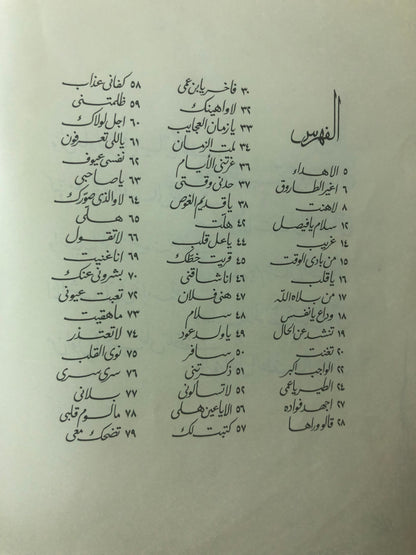 الفهرس
٥ الاهداء
٦ اغير الطاروق
٨ لاهنت
١٢ سلام يا فيصل
١٤ غريب
١٥ من بادي الوقت
١٦ ياقلب
١٧ من بلاه الله
١٨ وداع يانفس
١٩ تنشد عن الحال
٢٠ تغنت
٢٢ الواجب اكبر
٢٤ الطير ياعمي
٢٧ اجهد فواده
٢٨ قالو وراها
٣٠ فاخر يابن عمي
٣٢ لاواهينك
٣٣ يازمان العجايب
٣٤ لمت الزمان
٣٦ غرتني الأسام
٣٧ حدني وقتي
٣٨ ياقديم الغوص
٤٢ هلت
٤٤ ياعل قلب
٤٥ قريت خطك
٤٦ انا شاقني
٤٧ هني فلان
٤٨ سلام
٤٩ ياولد عود
٥٠ سافر
٥١ ذكرتني
٥٢ لاتسألوني
٥٦ الا ياعين هلي
٥٧ كتبت لك
٥٨ كفاني عذاب
٥٩ ظلمتني
٦٠ اجل لولاك
٦١ ياللي تعرفون
٦٢ نفسي عيوف
٦٣ ياصاحبي
٦٤ لا والذي صورك
٦٥ هلي
٦٦ لاتقول
٦٩ انا غنيت
٧٠ بشروني عنك
٧٢ تعبت عيوني
٧٣ ماهقيت
٧٤ لاتعتذر
٧٥ نوى القلب
٧٦ سرى سري
٧٧ بلاني
٧٨ مالوم قلبي
٧٩ تضحك معي